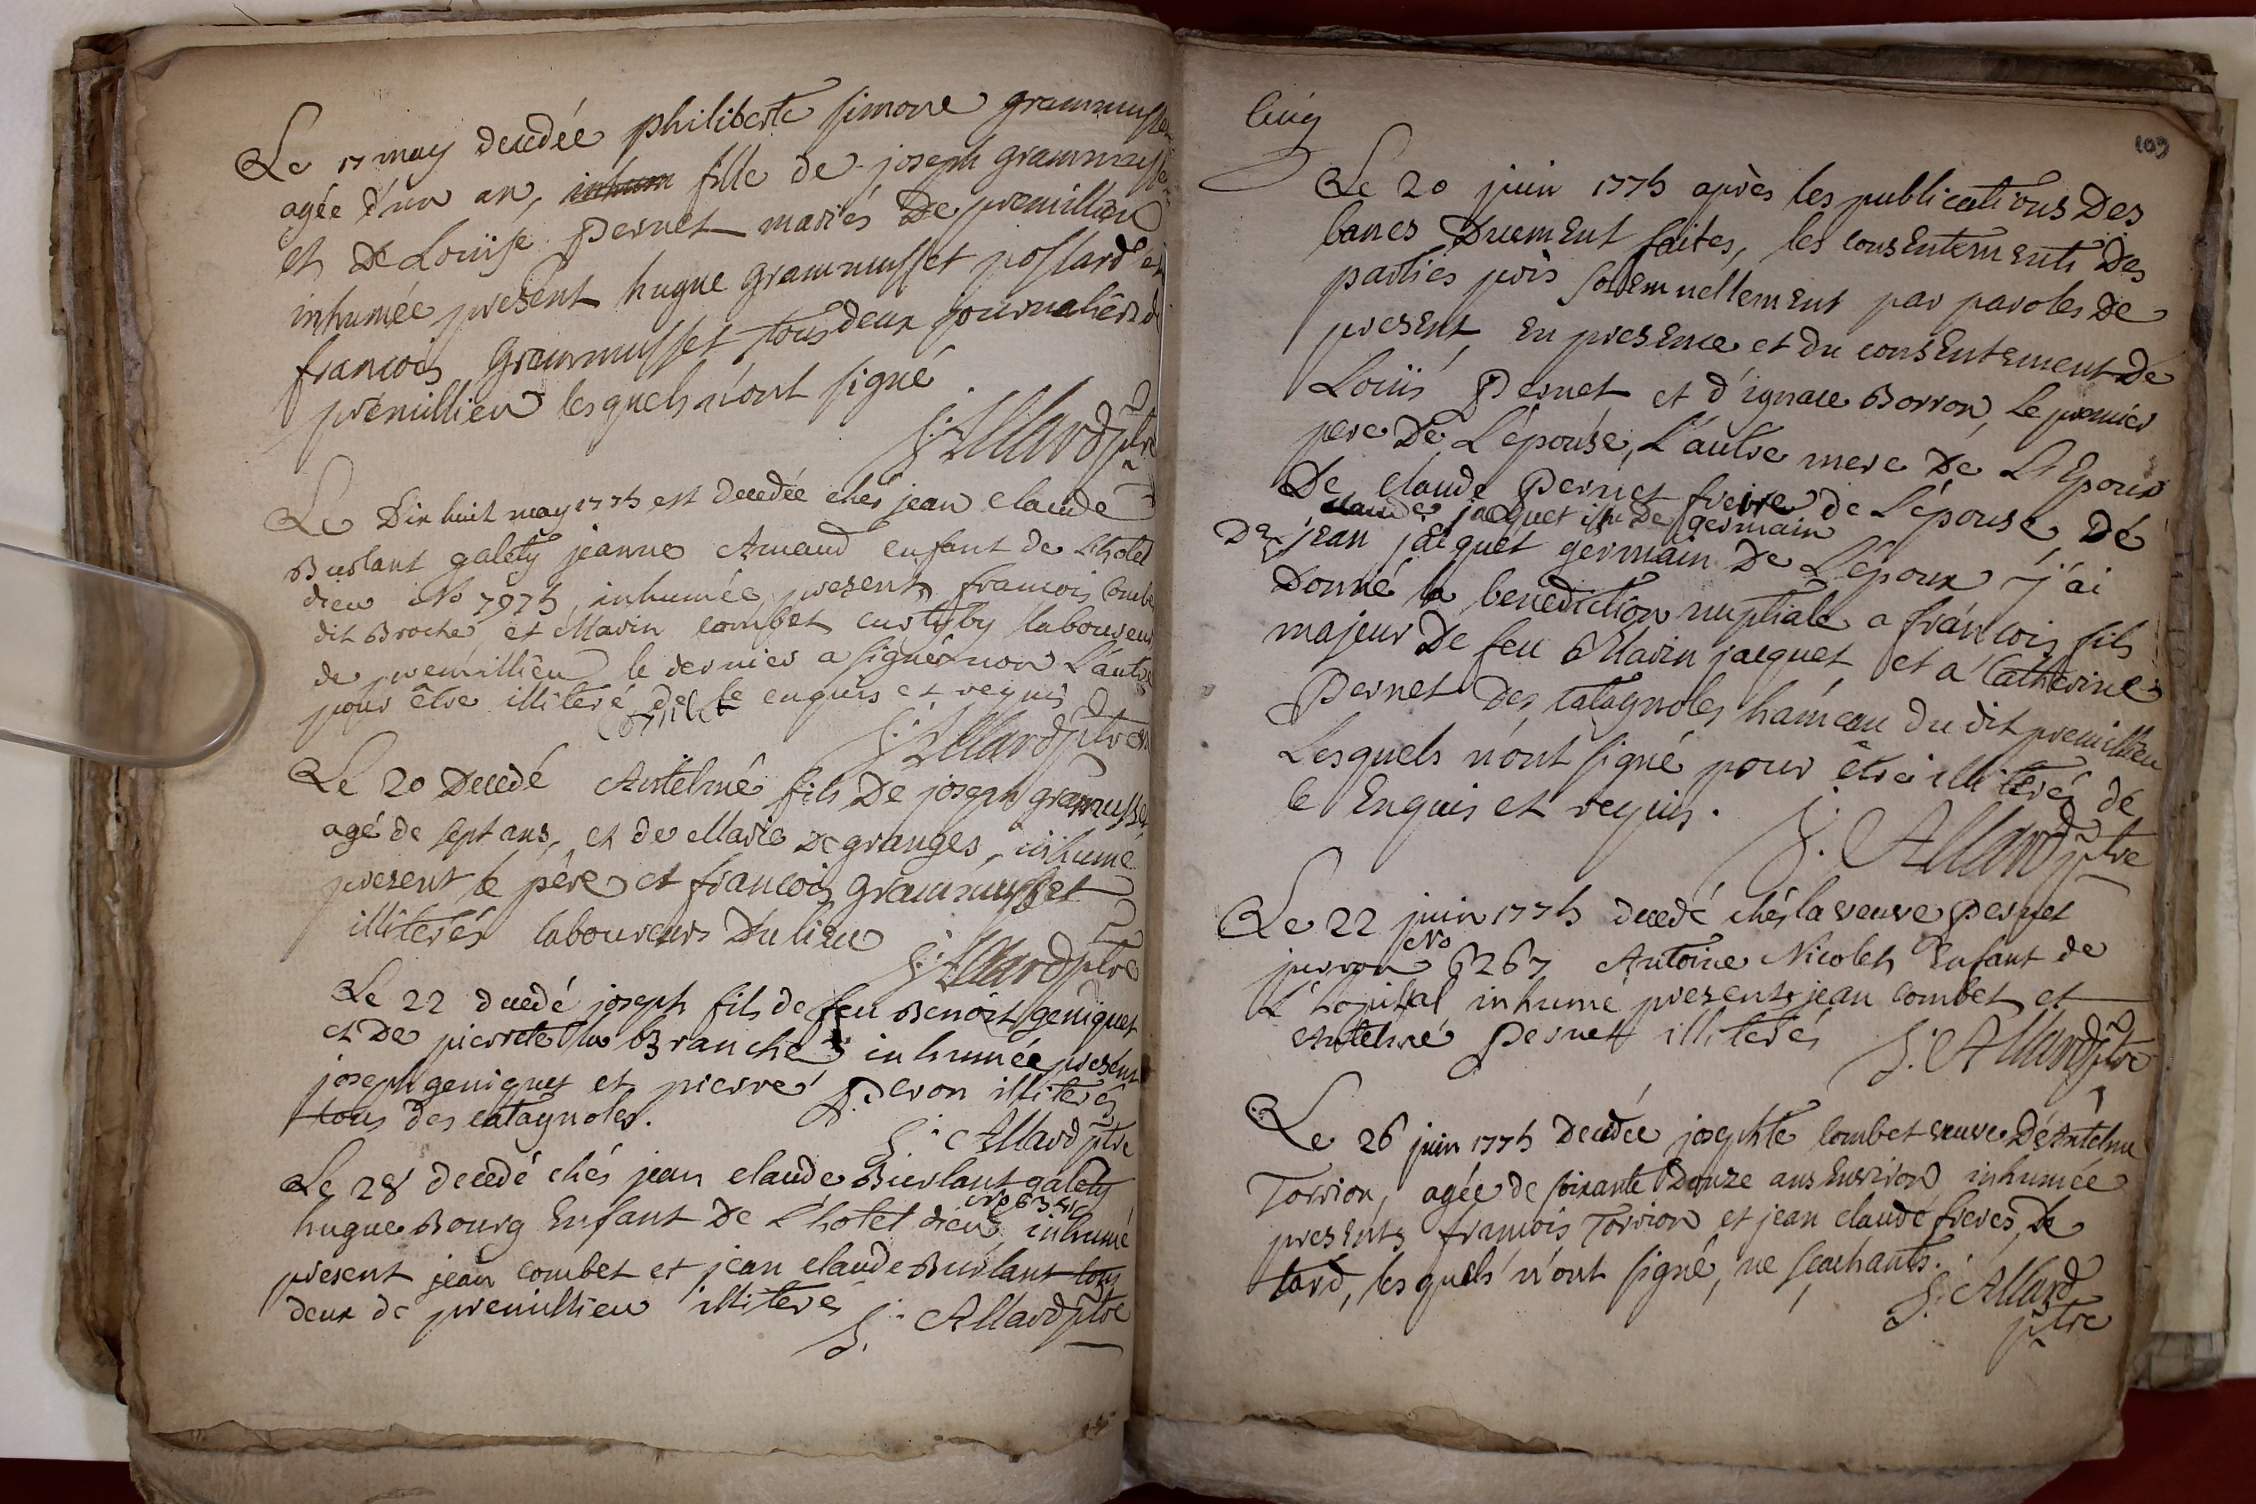 Le 17 may decedée philiberte simone grammusset
agée d'un an, inhum fille de joseph grammusset
et De Loüise Pernet mariés De premillieu
inhumée present hugue grammusset
francois Grammusset tous deux journaliers de
premillieu lesquels n'ont signé
J: Allard ptre
Le Dix huit may 1775 est decedée chés jean claude
Burlant galety jeanne Arnaud enfant de L'hotel
dieu No 7975 inhumée, presents francois Combet
dit Broche et Marin combet laboureurs
de premillieu le dernier a signé non L'autre
pour être illiteré de ce enquis et requis
J: Allard ptre
Le 20 Decedé Antelme fils De joseph grammusset
agé de sept ans, et de Marie Degranges, inhumé
present le père et francois grammusset
illiterés laboureurs Du lieu
J: Allard ptre
Le 22 decedé joseph fils de feu Benoit géniquet
et De pierrete la Branche inhumée present
joseph geniquet et pierre Peron illiterés
tous des catagnoles.
J: Allard ptre
Le 28 decedé chés jean claude Burlant galety
No 6354
hugue Bourg Enfant De L'hotel dieu, inhumé
present jean combet et jean claude Burlant tous
deux de premillieu illiterés
J: Allard ptre
Cinq
109
Le 20 juin 1775 après les publications Des
bancs Duement faites, les consentements Des
parties pris solemnellement par paroles De
present, en presence et du consentement De
Loüis Pernet et d'ignace Borron, Le premier
pere De L'épouse, L'autre mere De L'Epoux
De claude Pernet frere de L'épouse, De
claude jacquet De germain
De jean jacquet germain De L'époux j'ai
Donné la benediction nuptiale a francois fils
majeur De feu Marin jacquet, et a Catherine
Pernet Des catagnoles hameau du dit premillieu
Lesquels n'ont signé pour être illiterés de
ce Enquis et requis.
J: Allard ptre
Le 22 juin 1775 decedé chés la veuve Pernet
No
6267 Antoine Nicolet Enfant de
L'hopital inhumé presents jean combet et
Antelme Pernet illiterés
J: Allard ptre
Le 26 juin 1775 Decedée josephte combet veuve D'Antelme
Torrion, agée de soixante Douze ans Environ inhumée
presents francois Torrion et jean claude freres, De
tard, lesquels n'ont signé, ne scachants.
J: Allard
ptre